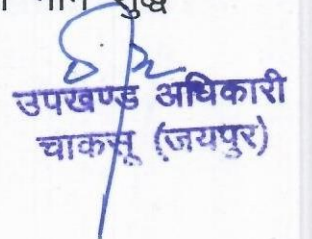 शुद्ध
उपखण्ड अधिकारी
चाकसू (जयपुर)